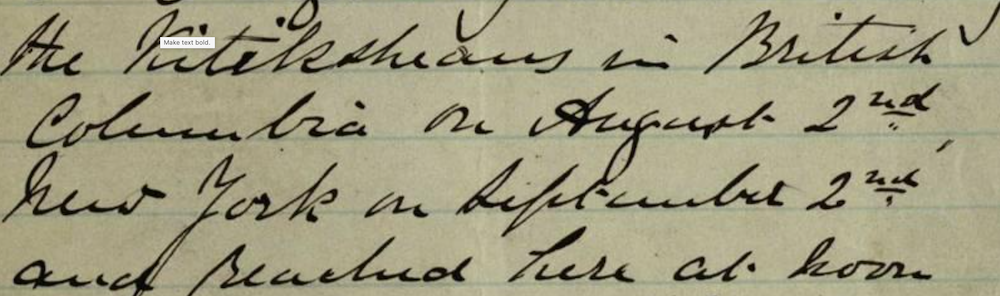 the Kitiksheans in British
Make text bold.
Columbia on August 2nd,
New York on September 2nd
and reached here at noon